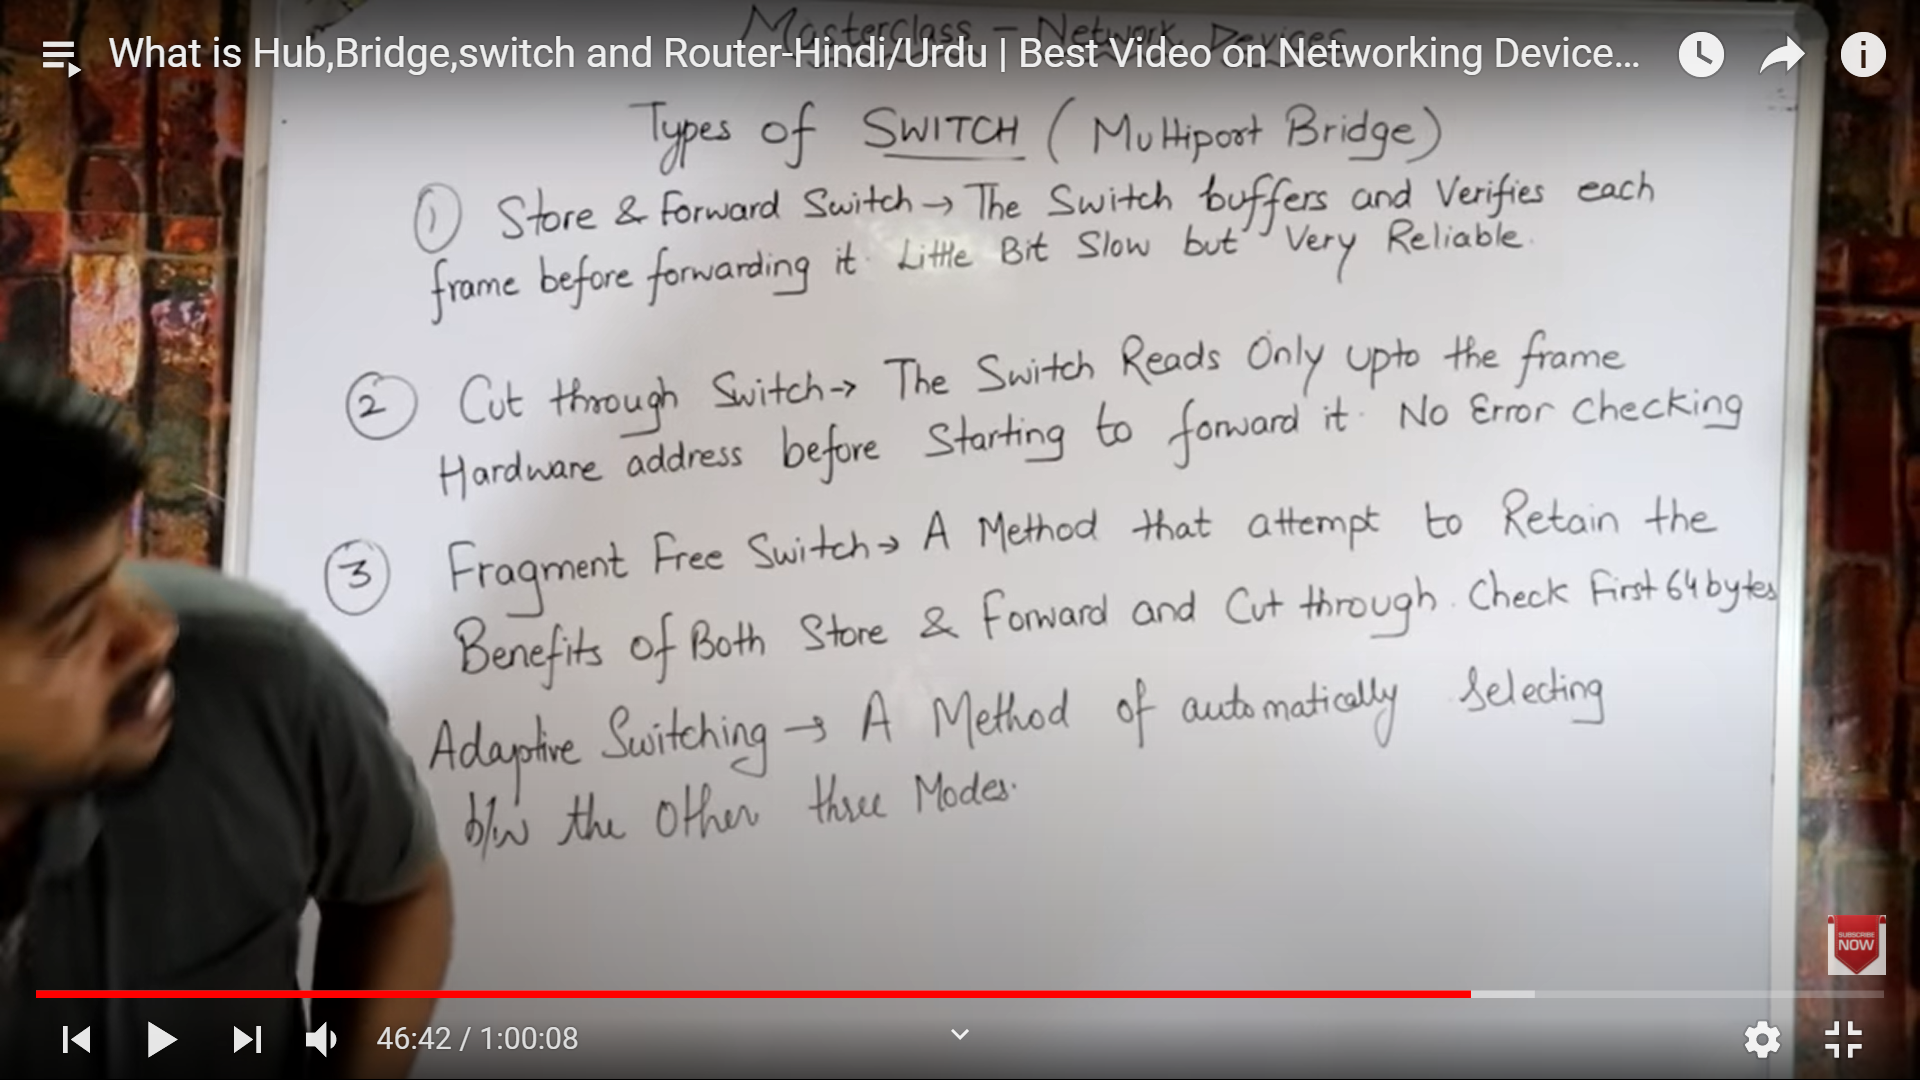 Masterclass - Network Devices
What is Hub,Bridge,switch and Router-Hindi/Urdu | Best Video on Networking Device...
Types of SWITCH (Multiport Bridge)
1 Store & Forward Switch → The Switch buffers and Verifies each
frame before forwarding it. Little Bit Slow but Very Reliable.
2 Cut through Switch → The Switch Reads Only upto the frame
Hardware address before Starting to forward it. No Error Checking
3 Fragment Free Switch → A Method that attempt to Retain the
Benefits of Both Store & Forward and Cut through. Check First 64 bytes
Adaptive Switching → A Method of automatically Selecting
b/w the Other three Modes.
SUBSCRIBE
NOW
46:42 / 1:00:08